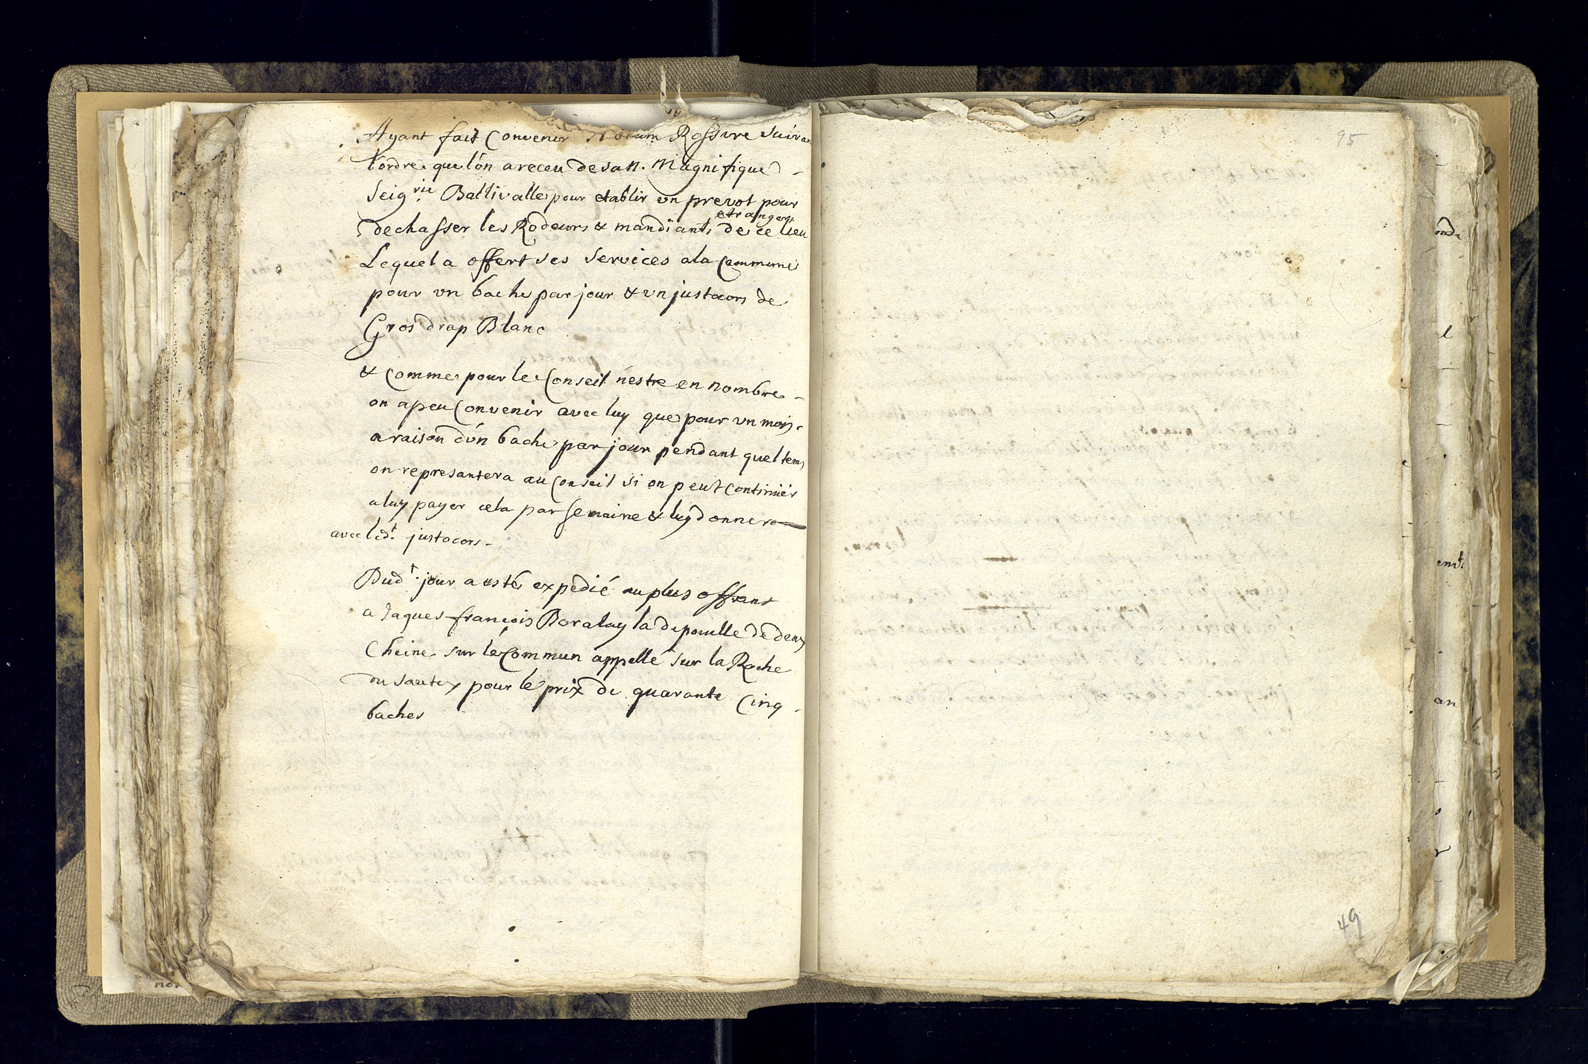 Ayant fait Convenir Rossire Suiva
lordre que lon a receu de sa n. Magnifique
Seig.rie Ballivalle pour etablir un prevot pour
dechasser les Rodeurs & mandiants etrangers de ce lieu
Lequel a offert ses services a la Commune
pour un bache par jour & un justocors de
Gros drap Blanc
& Comme pour le Conseil nestre en nombre
on a peu Convenir avec luy que pour un mois
a raison dun bache par jour pendant quel tems
on represantera au Conseil si on peut Continuer
a luy payer cela par semaine & luy donner
avec led.t justocors.
Dud.t jour a esté expedié au plus offrant
a Jaques françois Boralay la depouille de deux
Cheine sur le Commun appelle sur la Roche
du sautex pour le prix de quarante Cinq
baches
95
49